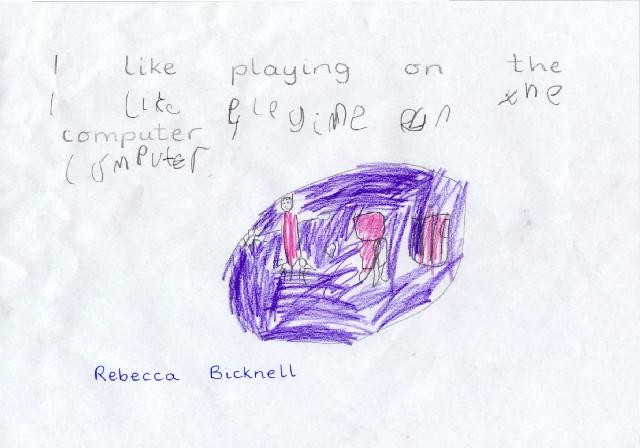 I like playing on the
I Like on the
computer
COMPUTER
Rebecca Bicknell